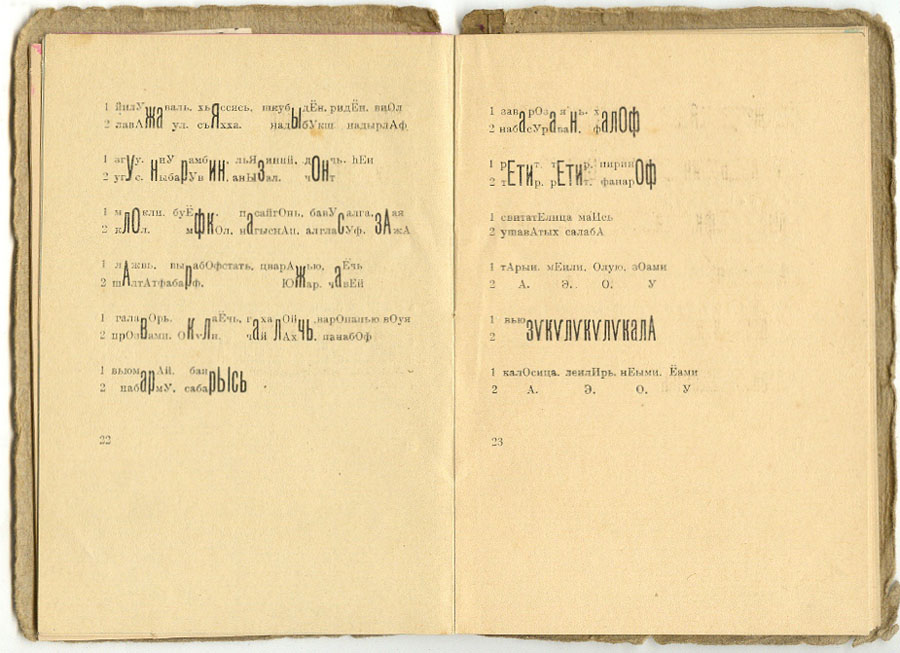 1 йилУжаваль. хьЯссясь. шкубыдЁн. ридЁн. виОл
2 лавАжа ул. съЯхха. надыбУкш надырлАф
1 згУу. ниУ рамбин. льЯзиний. дОнчь. нЕи
2 угУс. ныбарУв ин. аныЗзал. чОнт
1 млОкли. буЁфк. пасайгОнь. банУсалга. зАая
2 клОл. мфкОл. нагыскАп. алгласУф. зАжА
1 лАжвь. вырабОфстать. цварАжью, аЁчь
2 шАлтАтфабарф. Южар. чавЕй
1 галавОрь. клаЁчь. гаха лОйчь. варОпапью вОуя
2 прОзвами. Окvлп. чай лАхчь. панабОф
1 вьюмарАй. бан
2 набармУ. сабарЫсь
22
1 заварОз. аянь. халОф
2 набасУраван. фалОф
1 рЕтит. тЕтир. пирипОф
2 тЕтир. рЕтит. фанарОф
1 свитатЕлица маИсь
2 ушавАтых салабА
1 тАрыи. мЕили. Олую. зОами
2 А. Э. О. У
1 вью зvкvлvкvлvкалА
2
1 калОсица. леилИрь. нЕыми. Ёами
2 А. Э. О. У
23